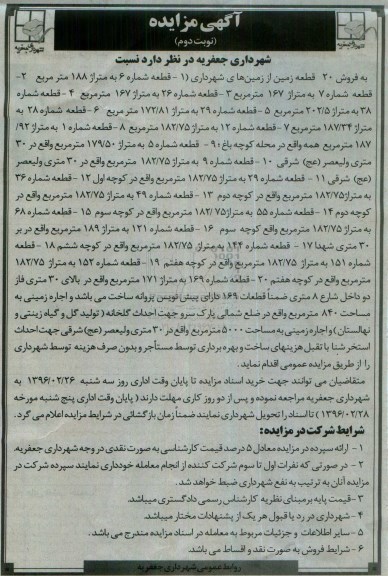 آگهی مزایده
(نوبت دوم)
شهرداری جعفریه در نظر دارد نسبت
به فروش ۲۰ قطعه زمین از زمین های شهرداری (۱- قطعه شماره ۶ به متراژ ۱۸۸ متر مربع ۲-
قطعه شماره ۷ به متراژ ۱۶۷ مترمربع ۳- قطعه شماره ۲۶ به متراژ ۱۶۷ مترمربع ۴- قطعه شماره
۳۸ به متراژ ۲۰۲/۵ مترمربع ۵- قطعه شماره ۲۹ به متراژ ۱۷۲/۸۱ مترمربع ۶- قطعه شماره ۲۸ به
متراژ ۱۸۷/۳۴ مترمربع ۷- قطعه شماره ۱۲ به متراژ ۱۸۲/۷۵ مترمربع ۸- قطعه شماره ۱ به متراژ ۹۲/
۱۸۷ مترمربع همه واقع در محله کوچه باغ؛ ۹- قطعه شماره ۵ به متراژ ۱۷۹/۵۰ مترمربع واقع در ۳۰
متری ولیعصر (عج) شرقی ۱۰- قطعه شماره ۹ به متراژ ۱۸۲/۷۵ مترمربع واقع در ۳۰ متری ولیعصر
(عج) شرقی ۱۱- قطعه شماره ۲۹ به متراژ ۱۸۲/۷۵ مترمربع واقع در کوچه اول ۱۲- قطعه شماره ۳۶
به متراژ ۱۸۲/۷۵ مترمربع واقع در کوچه دوم ۱۳- قطعه شماره ۴۹ به متراژ ۱۸۲/۷۵ مترمربع واقع در
کوچه دوم ۱۴- قطعه شماره ۵۵ به متراژ ۱۸۲/۷۵ مترمربع واقع در کوچه سوم ۱۵- قطعه شماره ۶۸
به متراژ ۱۸۲/۷۵ مترمربع واقع کوچه سوم ۱۶- قطعه شماره ۱۲۱ به متراژ ۱۸۹ مترمربع واقع در بر
۳۰ متری شهدا ۱۷- قطعه شماره ۱۴۴ به متراژ ۱۸۲/۷۵ مترمربع واقع در کوچه ششم ۱۸- قطعه
شماره ۱۵۱ به متراژ ۱۸۲/۷۵ مترمربع واقع در کوچه هفتم ۱۹- قطعه شماره ۱۵۲ به متراژ ۱۸۲/۷۵
مترمربع واقع در کوچه هفتم ۲۰- قطعه شماره ۱۶۹ به متراژ ۱۷۱ مترمربع در بالای ۳۰ متری فاز
دو داخل شارع ۸ متری ضمناً قطعات ۱۶۹ دارای پیش نویس پروانه ساخت می باشد و اجاره زمینی به
مساحت ۸۴۰ مترمربع واقع در ضلع شمالی پارک سرو جهت احداث گلخانه (تولید گل و گیاه زینتی و
نهالستان) و اجاره زمینی به مساحت ۵۰۰۰ مترمربع واقع در ۳۰ متری ولیعصر (عج) شرقی جهت احداث
استخر شنا با تقبل هزینهای ساخت و بهره برداری توسط مستأجر و بدون صرف هزینه توسط شهرداری
را از طریق مزایده عمومی اقدام نماید.
متقاضیان می توانند جهت خرید اسناد مزایده تا پایان وقت اداری روز سه شنبه ۱۳۹۶/۰۲/۲۶ به
شهرداری جعفریه مراجعه نموده و پس از دو روز کاری مهلت دارند (پایان وقت اداری پنج شنبه مورخه
۱۳۹۶/۰۲/۲۸) تا اسناد را تحویل شهرداری نمایند ضمناً زمان بازگشائی در شرایط مزایده اعلام می گردد.
شرایط شرکت در مزایده:
۱- ارائه سپرده در مزایده معادل ۵ درصد قیمت کارشناسی به صورت نقدی در وجه شهرداری جعفریه.
۲- در صورتی که نفرات اول تا سوم شرکت کننده از انجام معامله خودداری نمایند سپرده شرکت در
مزایده آنان به ترتیب به نفع شهرداری ضبط خواهد شد.
۳- قیمت پایه بر مبنای نظریه کارشناس رسمی دادگستری میباشد.
۴- شهرداری در رد یا قبول هر یک از پیشنهادات مختار میباشد.
۵- سایر اطلاعات و جزئیات مربوط به معامله در اسناد مزایده مندرج می باشد.
۶- شرایط فروش به صورت نقد و اقساط می باشد.
روابط عمومی شهرداری جعفریه